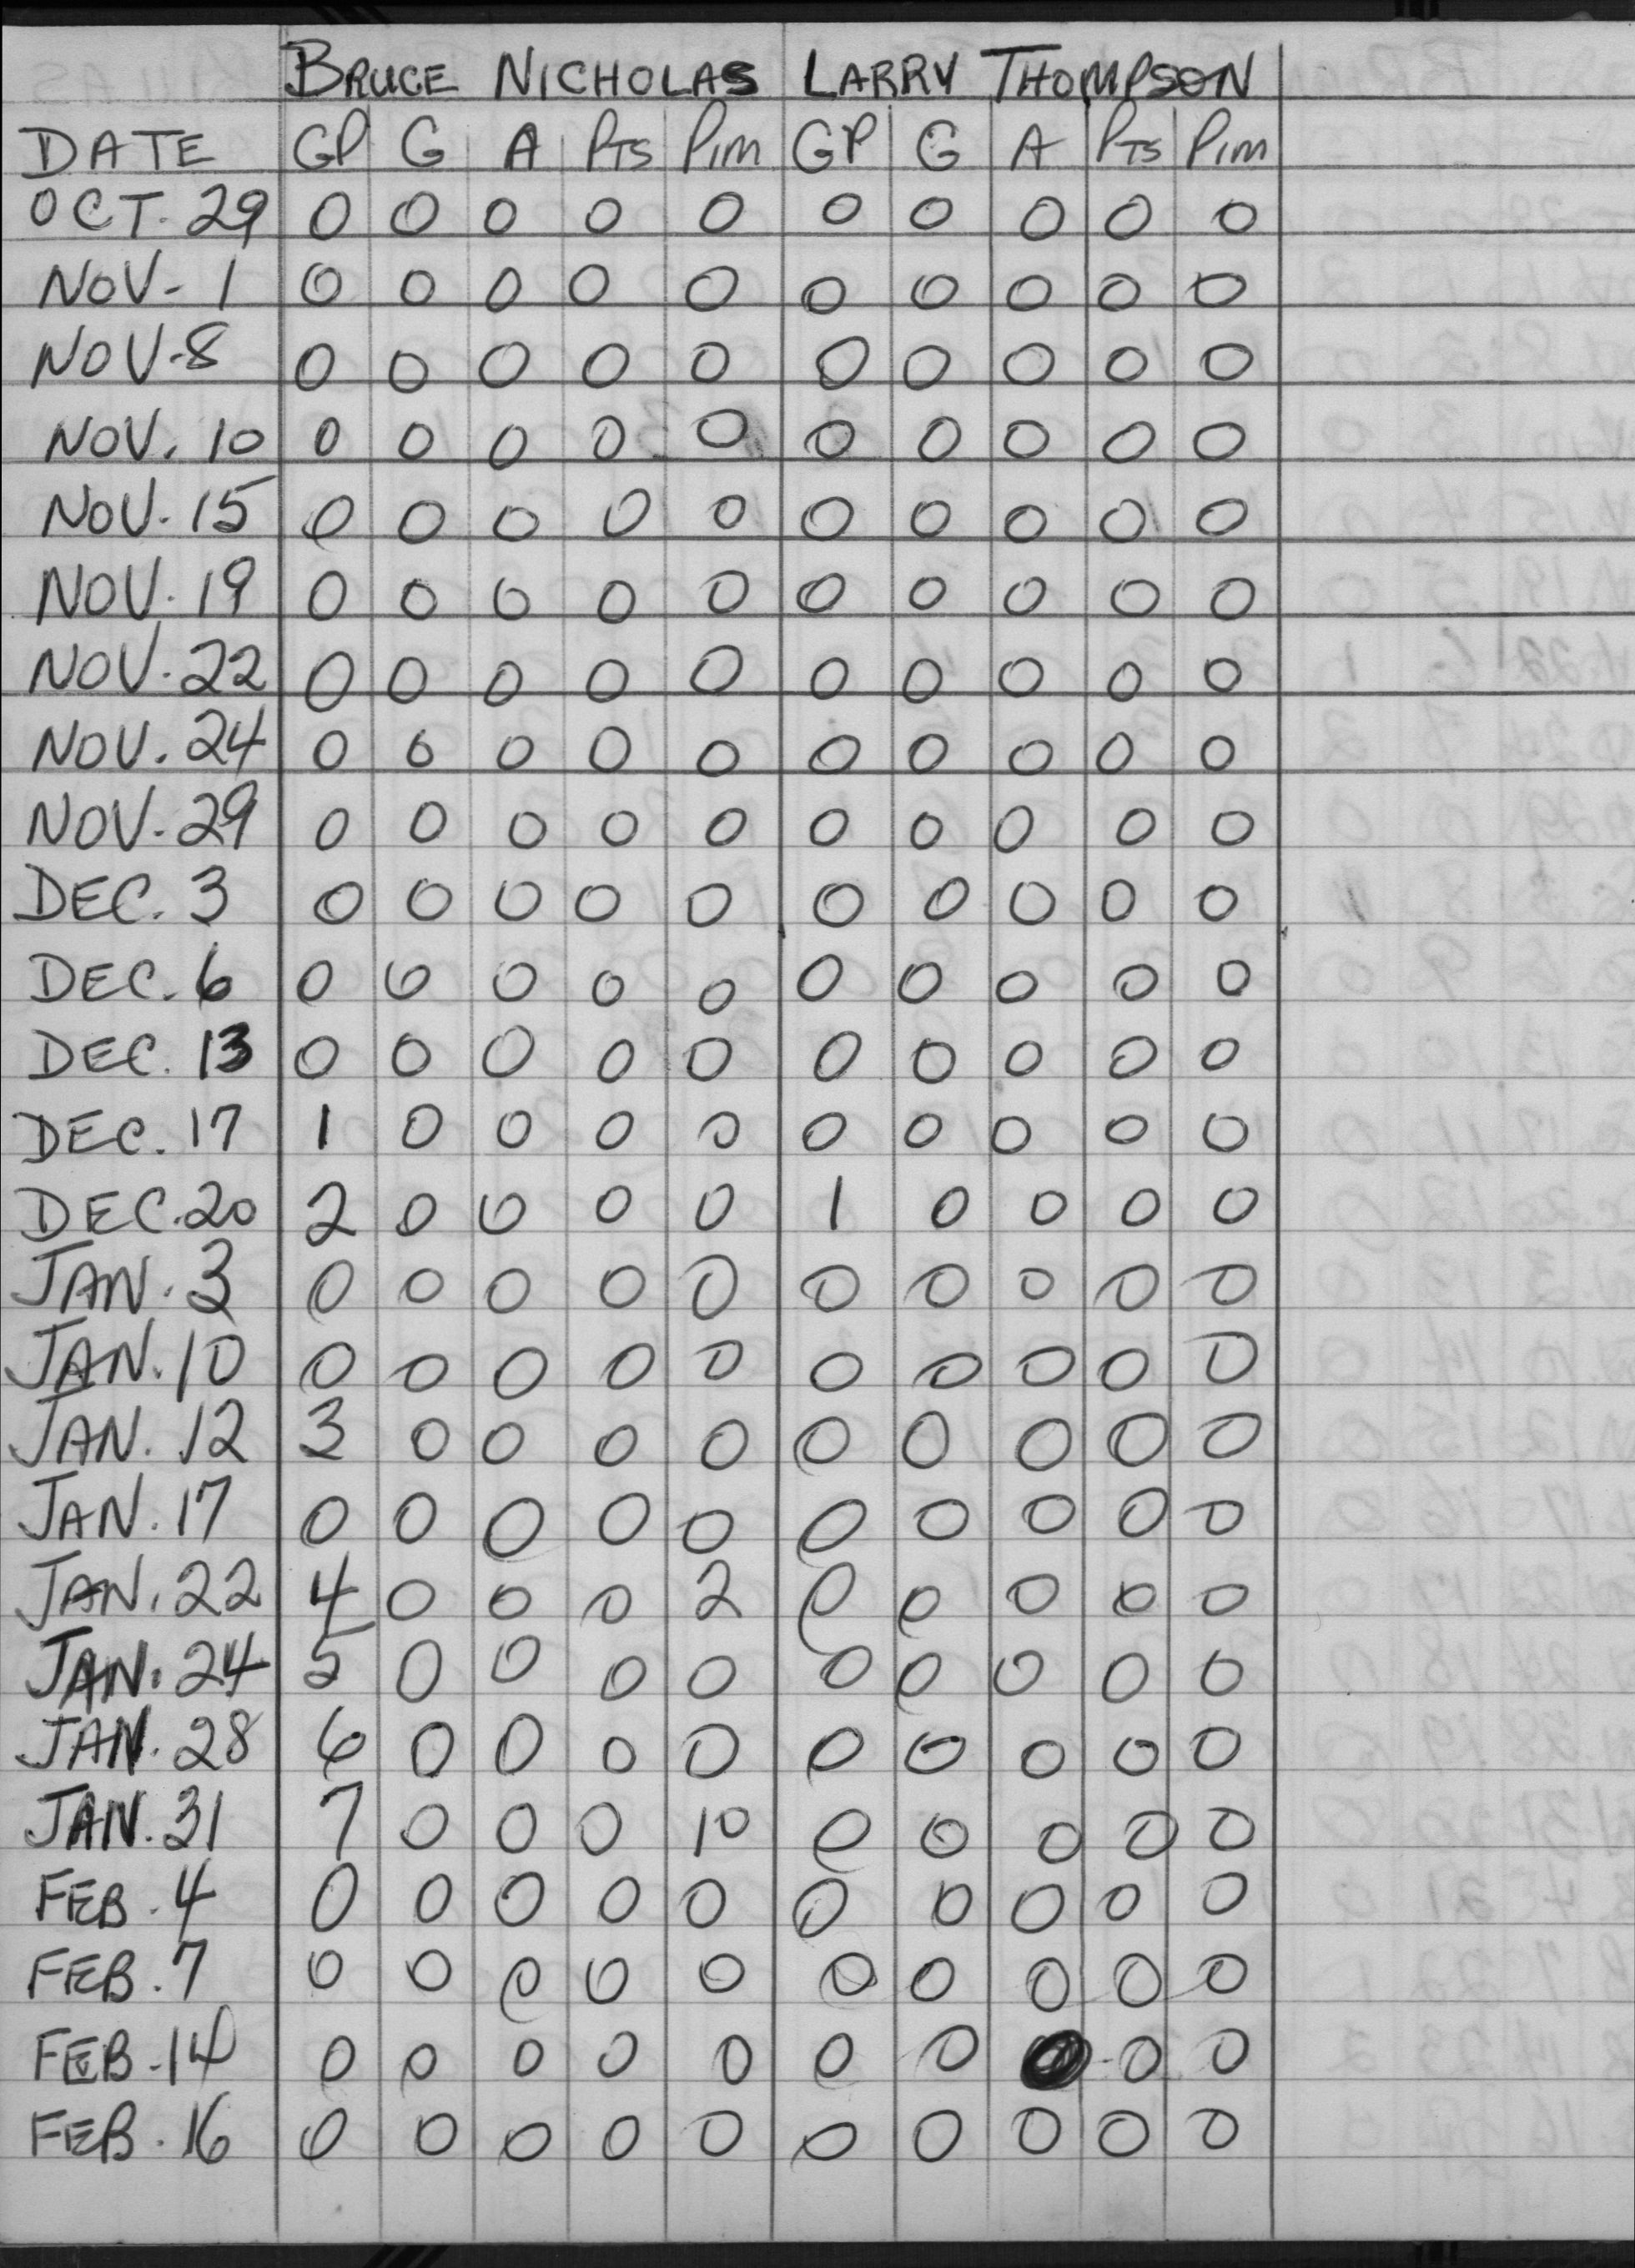 BRUCE NICHOLAS LARRY THOMPSON
DATE GP G A PTS PIM GP G A PTS PIM
OCT. 29 0 0 0 0 0 0 0 0 0 0
NOV- 1 0 0 0 0 0 0 0 0 0 0
NOV-8 0 0 0 0 0 0 0 0 0 0
NOV. 10 0 0 0 0 0 0 0 0 0 0
NOV. 15 0 0 0 0 0 0 0 0 0 0
NOV. 19 0 0 0 0 0 0 0 0 0 0
NOV. 22 0 0 0 0 0 0 0 0 0 0
NOV. 24 0 0 0 0 0 0 0 0 0 0
NOV. 29 0 0 0 0 0 0 0 0 0 0
DEC. 3 0 0 0 0 0 0 0 0 0 0
DEC. 6 0 0 0 0 0 0 0 0 0 0
DEC. 13 0 0 0 0 0 0 0 0 0 0
DEC. 17 1 0 0 0 0 0 0 0 0 0
DEC. 20 2 0 0 0 0 1 0 0 0 0
JAN. 3 0 0 0 0 0 0 0 0 0 0
JAN. 10 0 0 0 0 0 0 0 0 0 0
JAN. 12 3 0 0 0 0 0 0 0 0 0
JAN. 17 0 0 0 0 0 0 0 0 0 0
JAN. 22 4 0 0 0 2 0 0 0 0 0
JAN. 24 5 0 0 0 0 0 0 0 0 0
JAN. 28 6 0 0 0 0 0 0 0 0 0
JAN. 31 7 0 0 0 10 0 0 0 0 0
FEB. 4 0 0 0 0 0 0 0 0 0 0
FEB. 7 0 0 0 0 0 0 0 0 0 0
FEB-14 0 0 0 0 0 0 0 0 0 0
FEB. 16 0 0 0 0 0 0 0 0 0 0